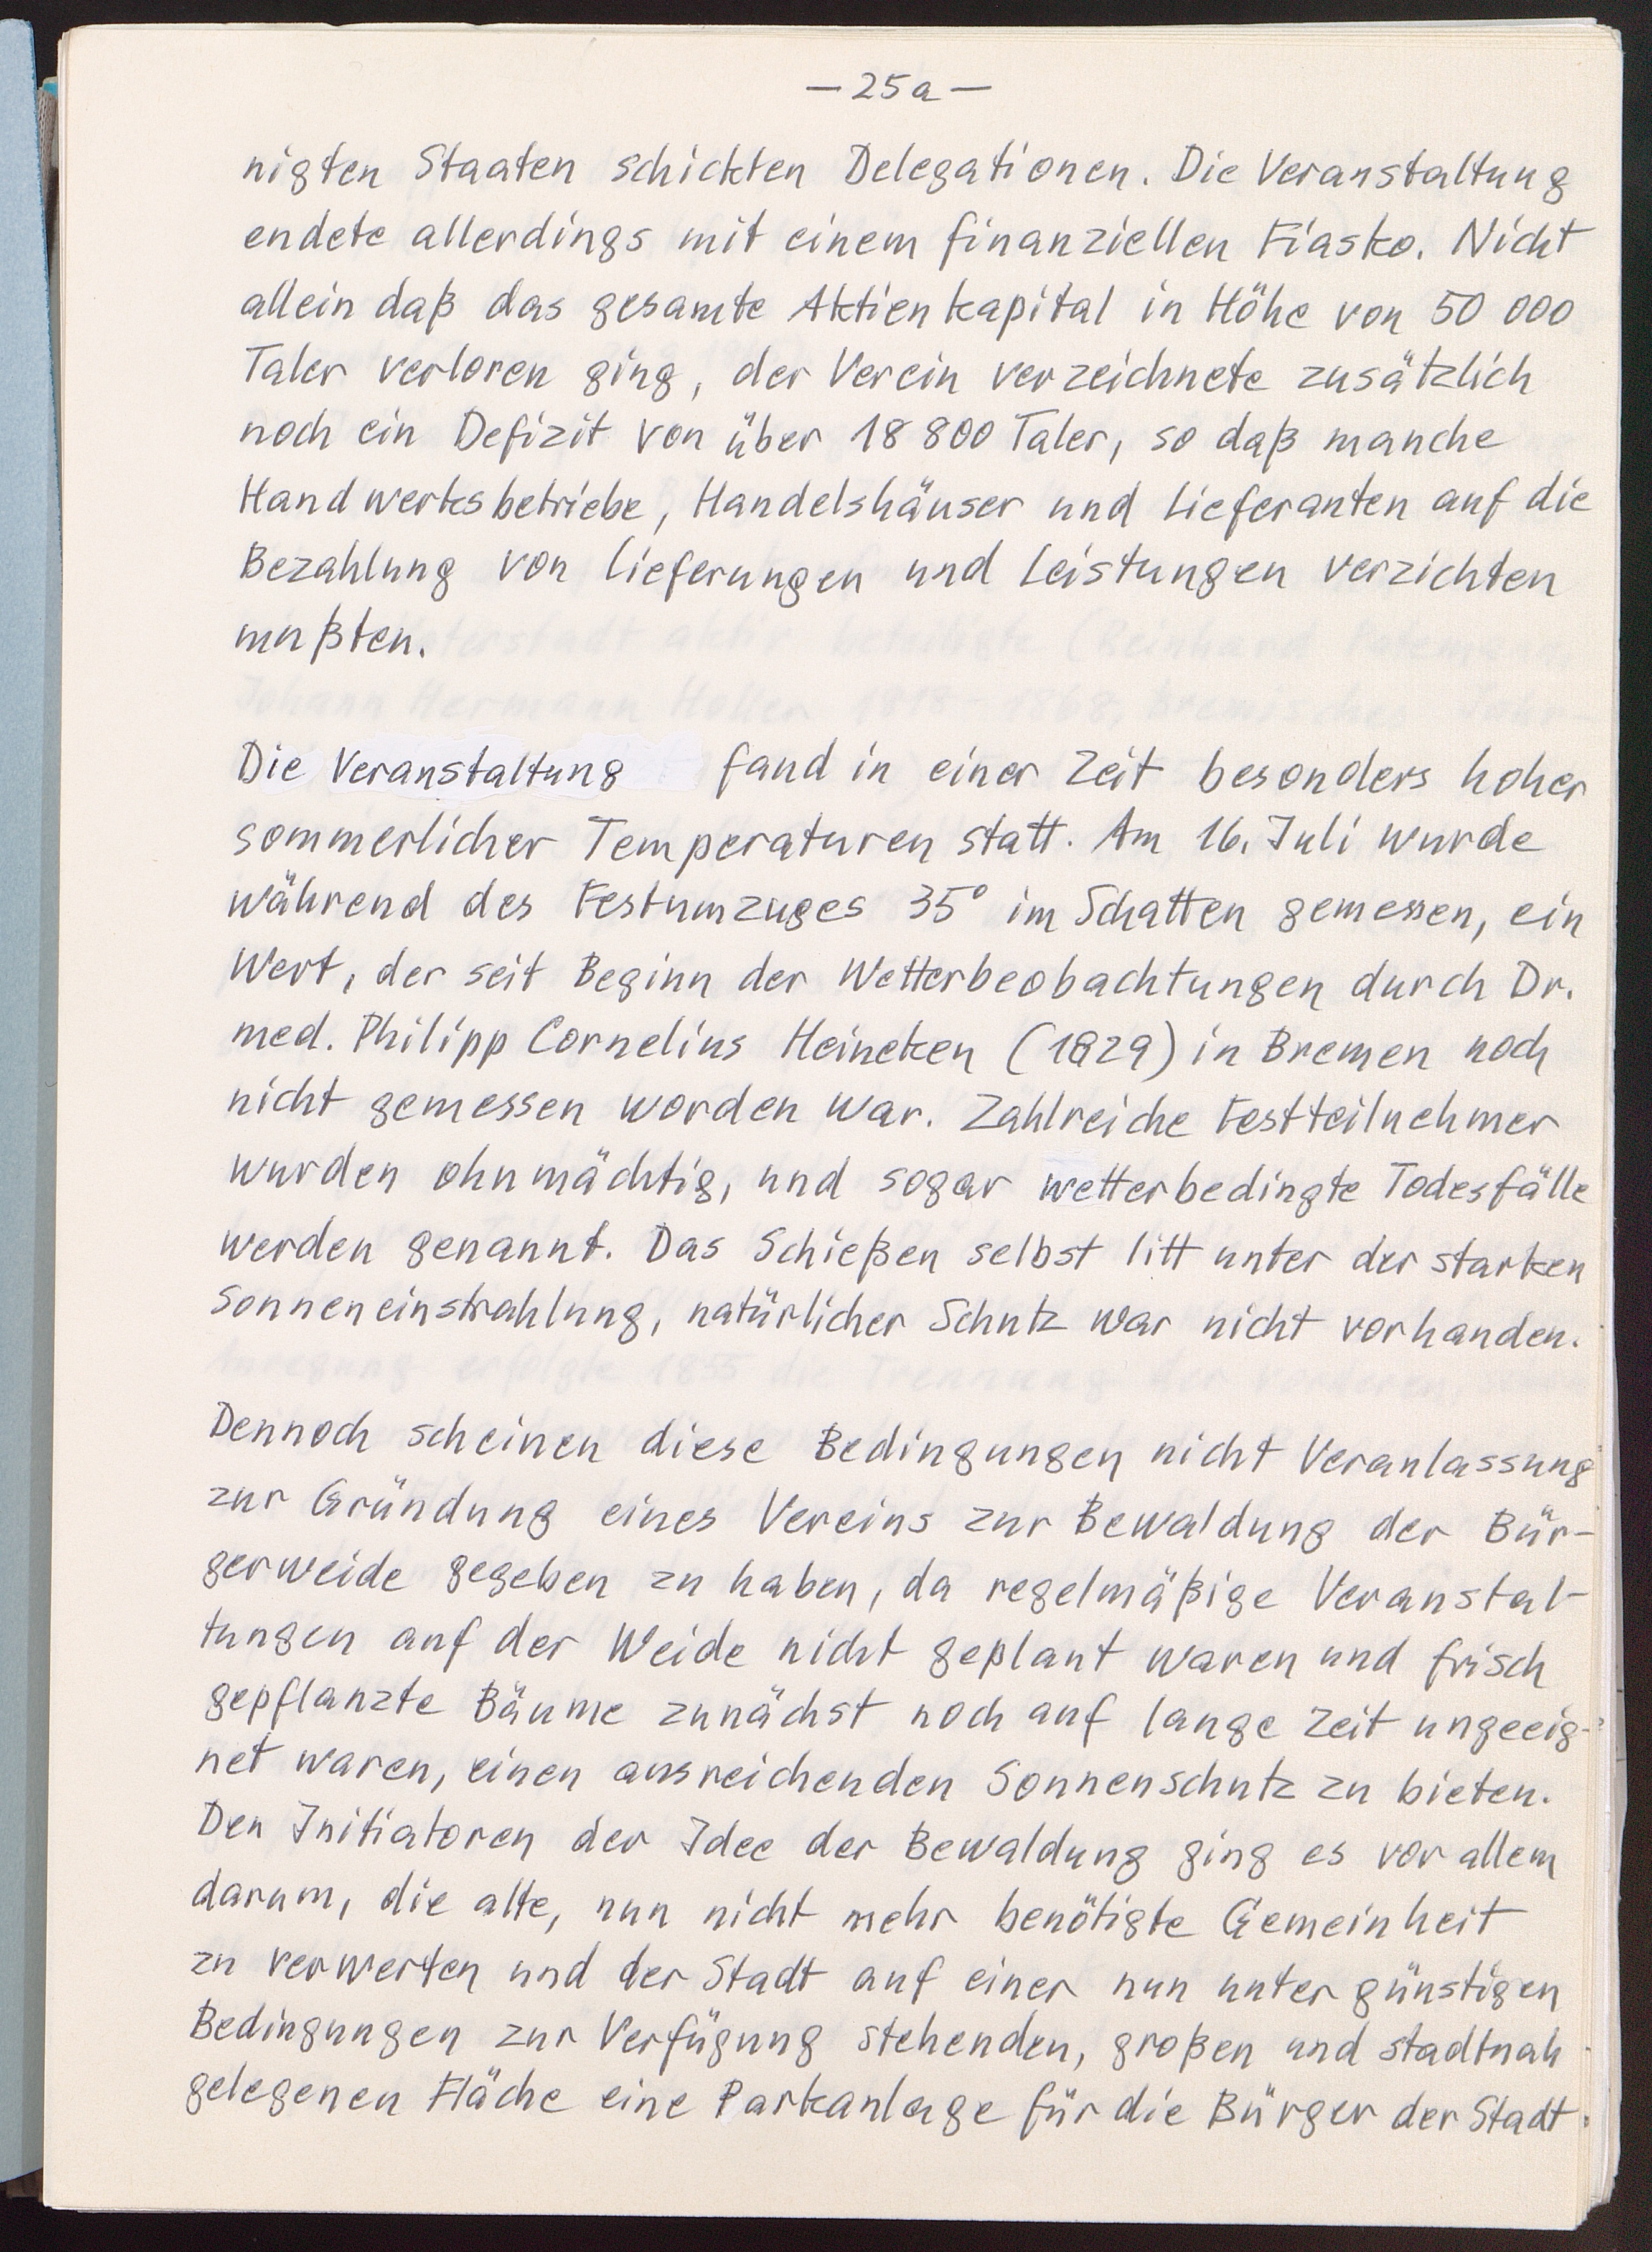 — 25a —
nigten Staaten schickten Delegationen. Die Veranstaltung
endete allerdings mit einem finanziellen Fiasko. Nicht
allein daß das gesamte Aktienkapital in Höhe von 50 000
Taler verloren ging, der Verein verzeichnete zusätzlich
noch ein Defizit von über 18 800 Taler, so daß manche
Handwerksbetriebe, Handelshäuser und Lieferanten auf die
Bezahlung von Lieferungen und Leistungen verzichten
mußten.
Die Veranstaltung fand in einer Zeit besonders hoher
sommerlicher Temperaturen statt. Am 16. Juli wurde
während des Festumzuges 35° im Schatten gemessen, ein
Wert, der seit Beginn der Wetterbeobachtungen durch Dr.
med. Philipp Cornelius Heineken (1829) in Bremen noch
nicht gemessen worden war. Zahlreiche Festteilnehmer
wurden ohnmächtig, und sogar wetterbedingte Todesfälle
werden genannt. Das Schießen selbst litt unter der starken
Sonneneinstrahlung, natürlicher Schutz war nicht vorhanden.
Dennoch scheinen diese Bedingungen nicht Veranlassung
zur Gründung eines Vereins zur Bewaldung der Bür-
gerweide gegeben zu haben, da regelmäßige Veranstal-
tungen auf der Weide nicht geplant waren und frisch
gepflanzte Bäume zunächst noch auf lange Zeit ungeeig-
net waren, einen ausreichenden Sonnenschutz zu bieten.
Den Initiatoren der Idee der Bewaldung ging es vor allem
darum, die alte, nun nicht mehr benötigte Gemeinheit
zu verwerten und der Stadt auf einer nun unter günstigen
Bedingungen zur Verfügung stehenden, großen und stadtnah
gelegenen Fläche eine Parkanlage für die Bürger der Stadt